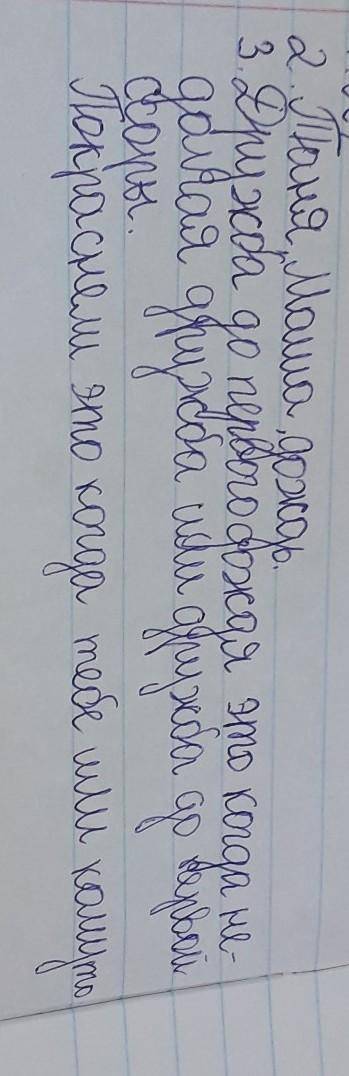 2. Таня, Маша, дождь.
3. Дружба до первого дождя это когда не-
долгая дружба или дружба до первой
ссоры.
Покраснели это когда тебе или камуто